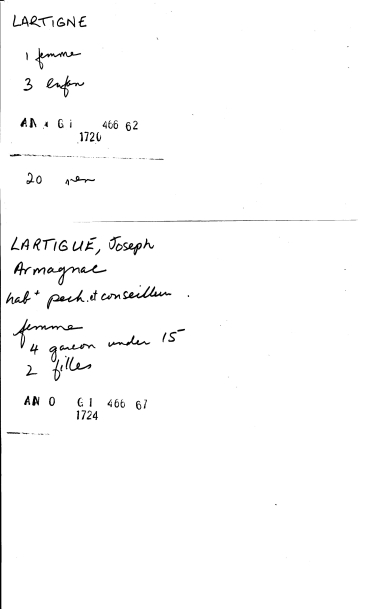 LARTIGNE
1 femme
3 enfan
AN G1 466 62
1720
20
LARTIGUE, Joseph
Armagnac
habt pech. et conseilleur.
femme
4 garcon under 15
2 filles
AN O G1 466 67
1724